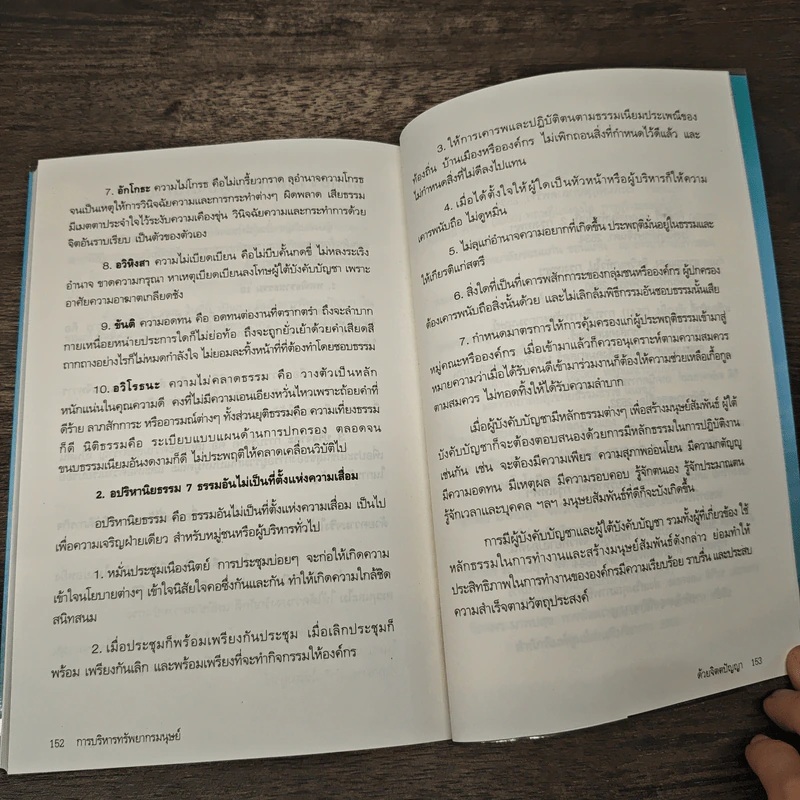 7. อักโกธะ ความไม่โกรธ คือไม่เกรี้ยวกราด ลุอำนาจความโกรธ
จนเป็นเหตุให้การวินิจฉัยความและการกระทำต่างๆ ผิดพลาด เสียธรรม
มีเมตตาประจำใจไว้ระงับความเคืองขุ่น วินิจฉัยความและกระทำการด้วย
จิตอันราบเรียบ เป็นตัวของตัวเอง
8. อวิหิงสา ความไม่เบียดเบียน คือไม่บีบคั้นกดขี่ ไม่หลงระเริง
อำนาจ ขาดความกรุณา หาเหตุเบียดเบียนลงโทษผู้ใต้บังคับบัญชา เพราะ
อาศัยความอาฆาตเกลียดชัง
9. ขันติ ความอดทน คือ อดทนต่องานที่ตรากตรำ ถึงจะลำบาก
กายเหนื่อยหน่ายประการใดก็ไม่ย่อท้อ ถึงจะถูกยั่วเย้าด้วยคำเสียดสี
ถากถางอย่างไรก็ไม่หมดกำลังใจ ไม่ยอมละทิ้งหน้าที่ที่ต้องทำโดยชอบธรรม
10. อวิโรธนะ ความไม่คลาดธรรม คือ วางตัวเป็นหลัก
หนักแน่นในคุณความดี คงที่ไม่มีความเอนเอียงหวั่นไหวเพราะถ้อยคำที่
ดีร้าย ลาภสักการะ หรืออารมณ์ต่างๆ ทั้งส่วนยุติธรรมคือ ความเที่ยงธรรม
ก็ดี นิติธรรมคือ ระเบียบแบบแผนด้านการปกครอง ตลอดจน
ขนบธรรมเนียมอันงดงามก็ดี ไม่ประพฤติให้คลาดเคลื่อนวิบัติไป
2. อปริหานิยธรรม 7 ธรรมอันไม่เป็นที่ตั้งแห่งความเสื่อม
อปริหานิยธรรม คือ ธรรมอันไม่เป็นที่ตั้งแห่งความเสื่อม เป็นไป
เพื่อความเจริญฝ่ายเดียว สำหรับหมู่ชนหรือผู้บริหารทั่วไป
1. หมั่นประชุมเนืองนิตย์ การประชุมบ่อยๆ จะก่อให้เกิดความ
เข้าใจนโยบายต่างๆ เข้าใจนิสัยใจคอซึ่งกันและกัน ทำให้เกิดความใกล้ชิด
สนิทสนม
2. เมื่อประชุมก็พร้อมเพรียงกันประชุม เมื่อเลิกประชุมก็
พร้อม เพรียงกันเลิก และพร้อมเพรียงที่จะทำกิจกรรมให้องค์กร
152 การบริหารทรัพยากรมนุษย์
3. ให้การเคารพและปฏิบัติตนตามธรรมเนียมประเพณีของ
ท้องถิ่น บ้านเมืองหรือองค์กร ไม่เพิกถอนสิ่งที่กำหนดไว้ดีแล้ว และ
ไม่กำหนดสิ่งที่ไม่ดีลงไปแทน
4. เมื่อได้ตั้งใจให้ผู้ใดเป็นหัวหน้าหรือผู้บริหารก็ให้ความ
เคารพนับถือ ไม่ดูหมิ่น
5. ไม่ลุแก่อำนาจความอยากที่เกิดขึ้น ประพฤติมั่นอยู่ในธรรมและ
ให้เกียรติแก่สตรี
6. สิ่งใดที่เป็นที่เคารพสักการะของกลุ่มชนหรือองค์กร ผู้ปกครอง
ต้องเคารพนับถือสิ่งนั้นด้วย และไม่เลิกล้มพิธีกรรมอันชอบธรรมนั้นเสีย
7. กำหนดมาตรการให้การคุ้มครองแก่ผู้ประพฤติธรรมเข้ามาสู่
หมู่คณะหรือองค์กร เมื่อเข้ามาแล้วก็ควรอนุเคราะห์ตามความสมควร
หมายความว่าเมื่อได้รับคนดีเข้ามาร่วมงานก็ต้องให้ความช่วยเหลือเกื้อกูล
ตามสมควร ไม่ทอดทิ้งให้ได้รับความลำบาก
เมื่อผู้บังคับบัญชามีหลักธรรมต่างๆ เพื่อสร้างมนุษย์สัมพันธ์ ผู้ใต้
บังคับบัญชาก็จะต้องตอบสนองด้วยการมีหลักธรรมในการปฏิบัติงาน
เช่นกัน เช่น จะต้องมีความเพียร ความสุภาพอ่อนโยน มีความกตัญญู
มีความอดทน มีเหตุผล มีความรอบคอบ รู้จักตนเอง รู้จักประมาณตน
รู้จักเวลาและบุคคล ฯลฯ มนุษยสัมพันธ์ที่ดีก็จะบังเกิดขึ้น
การมีผู้บังคับบัญชาและผู้ใต้บังคับบัญชา รวมทั้งผู้ที่เกี่ยวข้อง ใช้
หลักธรรมในการทำงานและสร้างมนุษย์สัมพันธ์ดังกล่าว ย่อมทำให้
ประสิทธิภาพในการทำงานขององค์กรมีความเรียบร้อย ราบรื่น และประสบ
ความสำเร็จตามวัตถุประสงค์
ด้วยจิตตปัญญา 153